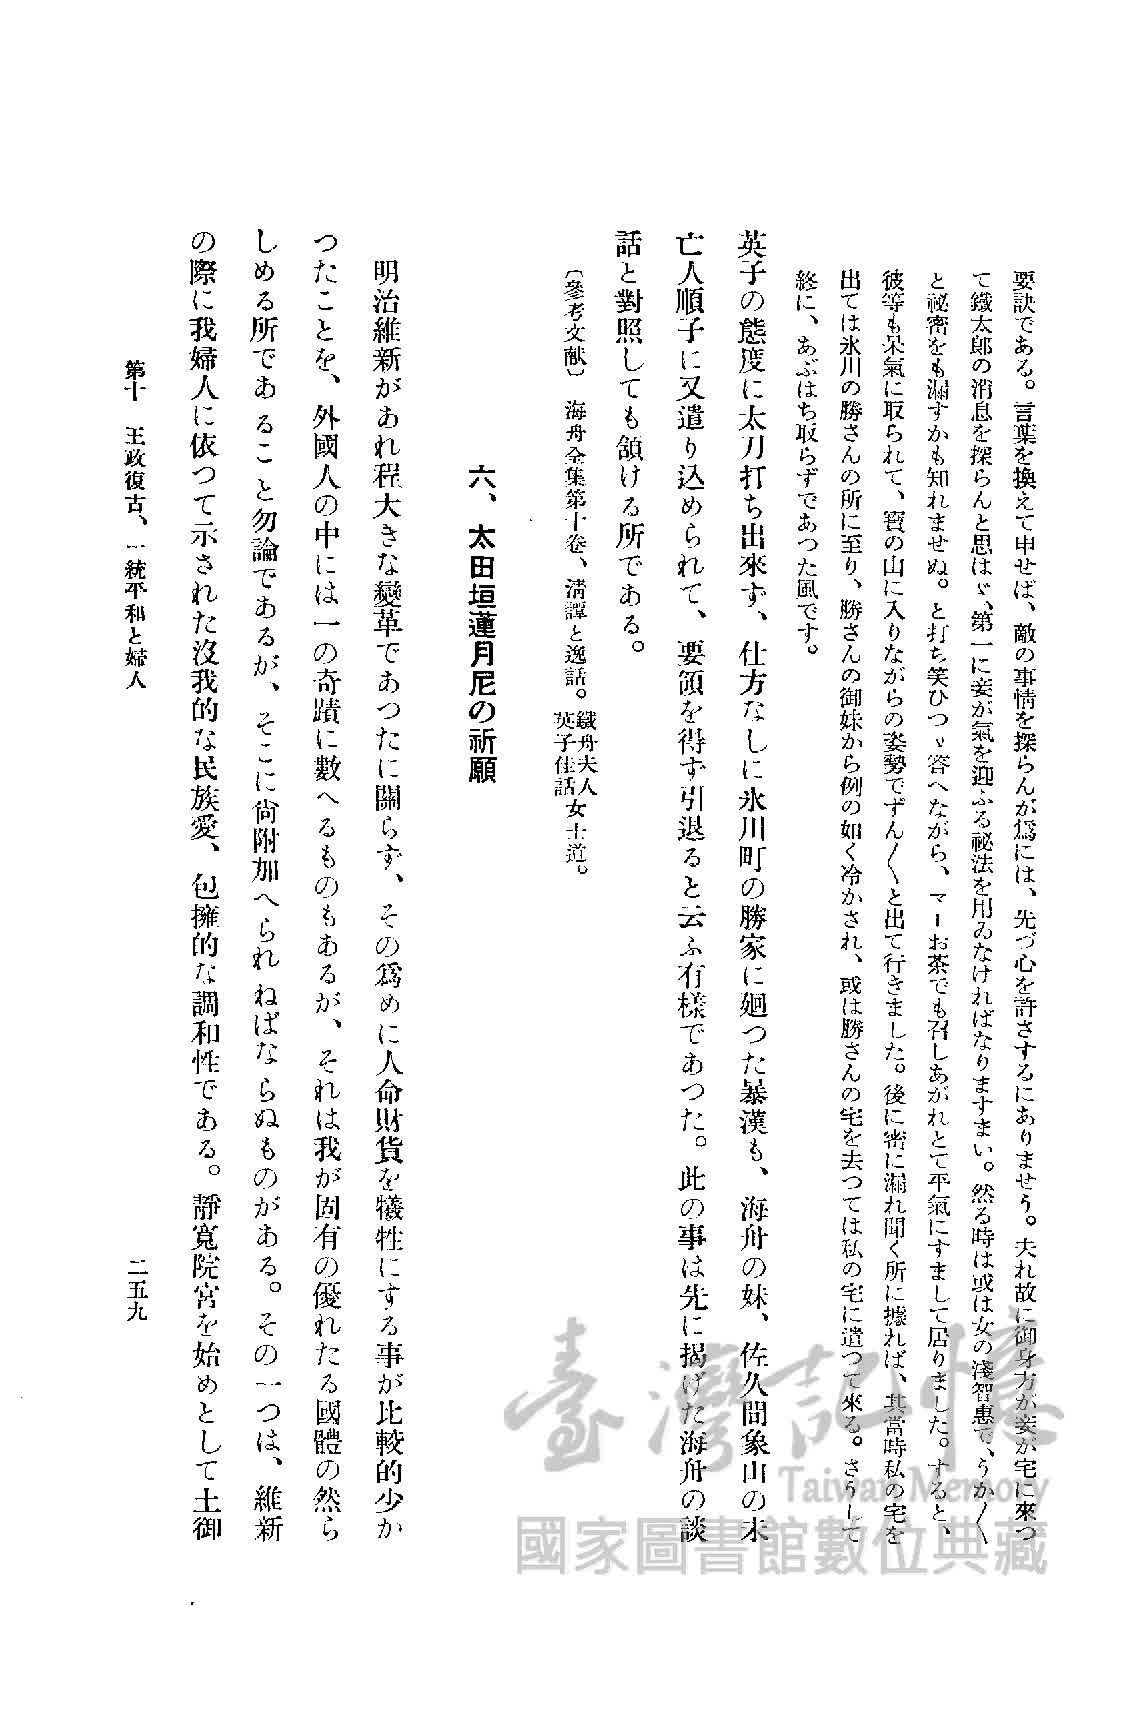 要訣である。言葉を換えて申せば、敵の事情を探らんが爲には、先づ心を許さするにありませう。夫れ故に御身方が妾が宅に來つ
て鐵太郎の消息を探らんと思はゞ、第一に妾が氣を迎ふる祕法を用ゐなければなりますまい。然る時は或は女の淺智惠で、うか〱
と祕密をも漏すかも知れませぬ。と打ち笑ひつゝ答へながら、マーお茶でも召しあがれとて平氣にすまして居りました。すると、
彼等も呆氣に取られて、寶の山に入りながらの姿勢でずん〱と出て行きました。後に密に漏れ聞く所に據れば、其當時私の宅を
出ては氷川の勝さんの所に至り、勝さんの御妹から例の如く冷かされ、或は勝さんの宅を去つては私の宅に遣つて來る。さうして
終に、あぶはち取らずであつた風です。
英子の態度に太刀打ち出來ず、仕方なしに氷川町の勝家に廻つた暴漢も、海舟の妹、佐久間象山の未
亡人順子に又遣り込められて、要領を得ず引退ると云ふ有様であつた。此の事は先に揭げた海舟の談
話と對照しても頷ける所である。
〔參考文献〕 海舟全集第十卷、淸譚と逸話。鐵舟夫人英子佳話女士道。
六、太田垣蓮月尼の祈願
明治維新があれ程大きな變革であつたに關らず、その爲めに人命財貨を犧牲にする事が比較的少か
つたことを、外國人の中には一の奇蹟に數へるものもあるが、それは我が固有の優れたる國體の然ら
しめる所であること勿論であるが、そこに尙附加へられねばならぬものがある。その一つは、維新
の際に我婦人に依つて示された沒我的な民族愛、包擁的な調和性である。靜寬院宮を始めとして土御
第十 王政復古、一統平和と婦人
二五九
臺灣記憶
Taiwan Memory
國家圖書館數位典藏